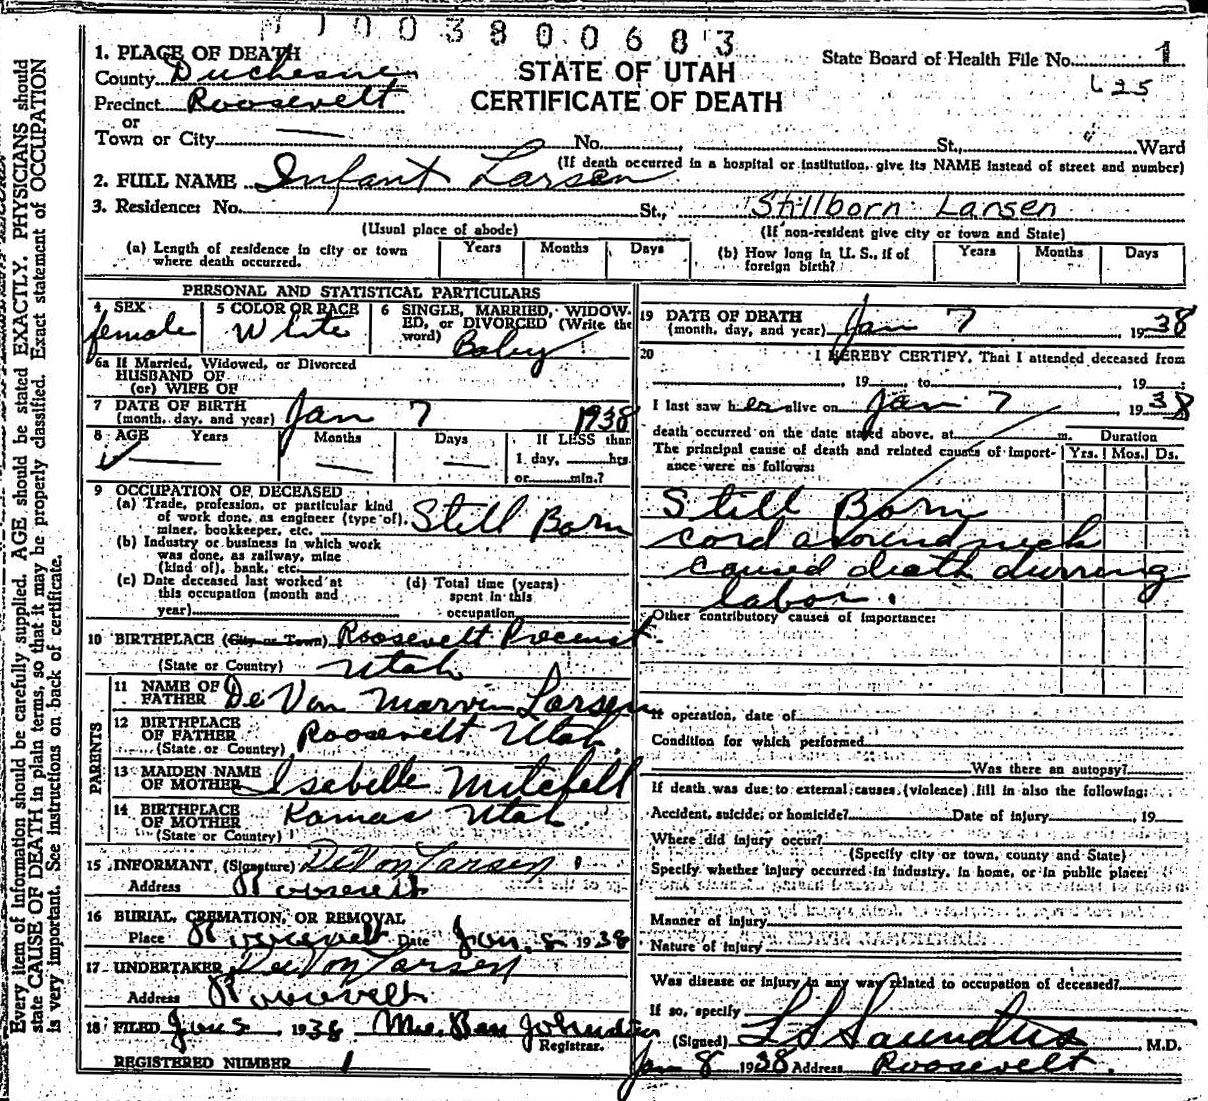 1003800683
State Board of Health File No. 1
625
STATE OF UTAH
CERTIFICATE OF DEATH
1. PLACE OF DEATH
County Duchesne
Precinct Roosevelt
or
Town or City No. , St., Ward
(If death occurred in a hospital or institution, give its NAME instead of street and number)
2. FULL NAME Infant Larsen
3. Residence: No. St., Stillborn Larsen
(Usual place of abode) (If non-resident give city or town and State)
(a) Length of residence in city or town where death occurred. Years Months Days
(b) How long in U. S., if of foreign birth? Years Months Days
PERSONAL AND STATISTICAL PARTICULARS
4 SEX female
5 COLOR OR RACE White
6 SINGLE, MARRIED, WIDOWED, or DIVORCED (Write the word) Baby
6a If Married, Widowed, or Divorced
HUSBAND OF
(or) WIFE OF
7 DATE OF BIRTH
(month, day, and year) Jan 7 1938
8 AGE Years Months Days If LESS than
1 day, hrs.
or min.?
9 OCCUPATION OF DECEASED
(a) Trade, profession, or particular kind
of work done, as engineer (type of),
miner, bookkeeper, etc. Still Born
(b) Industry or business in which work
was done, as railway, mine
(kind of), bank, etc.
(c) Date deceased last worked at
this occupation (month and
year)
(d) Total time (years)
spent in this
occupation
10 BIRTHPLACE (City or Town) Roosevelt Precinct
(State or Country) Utah
PARENTS
11 NAME OF
FATHER De Von Marvin Larsen
12 BIRTHPLACE
OF FATHER
(State or Country) Roosevelt Utah
13 MAIDEN NAME
OF MOTHER Isabelle Mitchell
14 BIRTHPLACE
OF MOTHER
(State or Country) Kamas Utah
15 INFORMANT, (Signature) DeVon Larsen
Address Roosevelt
16 BURIAL, CREMATION, OR REMOVAL
Place Roosevelt Date Jan. 8 1938
17 UNDERTAKER DeVon Larsen
Address Roosevelt
18 FILED Jan 8, 1938 Mrs. Ben
Registrar.
REGISTERED NUMBER 1
19 DATE OF DEATH
(month, day, and year) Jan 7, 1938
20 I HEREBY CERTIFY, That I attended deceased from
, 19 , to , 19 ;
I last saw her alive on Jan 7, 1938
death occurred on the date stated above, at m.
The principal cause of death and related causes of importance were as follows:
Duration
Yrs. Mos. Ds.
Still Born
cord around neck
caused death durring
labor.
Other contributory causes of importance:
If operation, date of
Condition for which performed
Was there an autopsy?
If death was due to external causes (violence) fill in also the following:
Accident, suicide, or homicide? Date of injury , 19
Where did injury occur?
(Specify city or town, county and State)
Specify whether injury occurred in industry, in home, or in public place:
Manner of injury
Nature of injury
Was disease or injury in any way related to occupation of deceased?
If so, specify
(Signed) L S Saunders, M.D.
Jan 8 1938 Address Roosevelt.
Every item of information should be carefully supplied. AGE should be stated EXACTLY. PHYSICIANS should
state CAUSE OF DEATH in plain terms, so that it may be properly classified. Exact statement of OCCUPATION
is very important. See instructions on back of certificate.